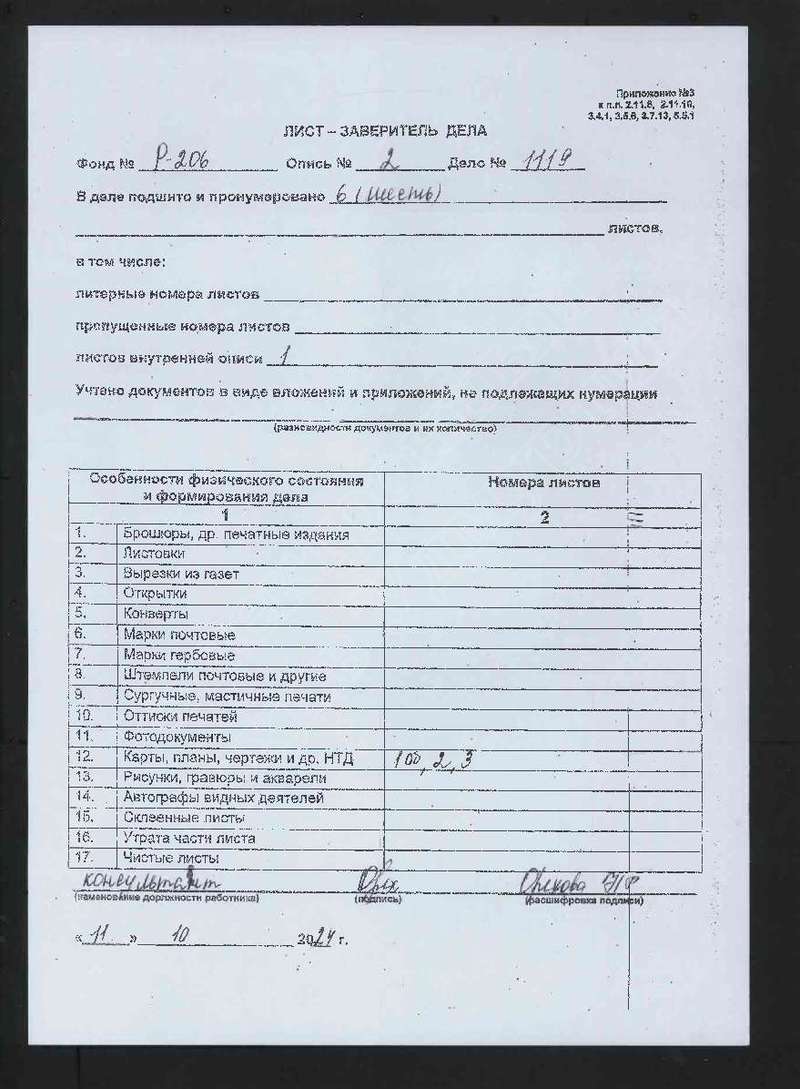 Приложение №3
к п.п. 2.11.8, 2.11.10,
3.4.1, 3.5.6, 3.7.13, 5.5.1
ЛИСТ – ЗАВЕРИТЕЛЬ ДЕЛА
Фонд № Р-206 Опись № 2 Дело № 1119
В деле подшито и пронумеровано 6 (шесть)
листов,
в том числе:
литерные номера листов
пропущенные номера листов
листов внутренней описи 1
Учтено документов в виде вложений и приложений, не подлежащих нумерации
(разновидности документов и их количество)
Особенности физического состояния Номера листов
и формирования дела
1 2
1. Брошюры, др. печатные издания
2. Листовки
3. Вырезки из газет
4. Открытки
5. Конверты
6. Марки почтовые
7. Марки гербовые
8. Штемпели почтовые и другие
9. Сургучные, мастичные печати
10. Оттиски печатей
11. Фотодокументы
12. Карты, планы, чертежи и др. НТД 1об, 2, 3
13. Рисунки, гравюры и акварели
14. Автографы видных деятелей
15. Склеенные листы
16. Утрата части листа
17. Чистые листы
консультант
(наименование должности работника) (подпись) (расшифровка подписи)
« 11 » 10 2024 г.